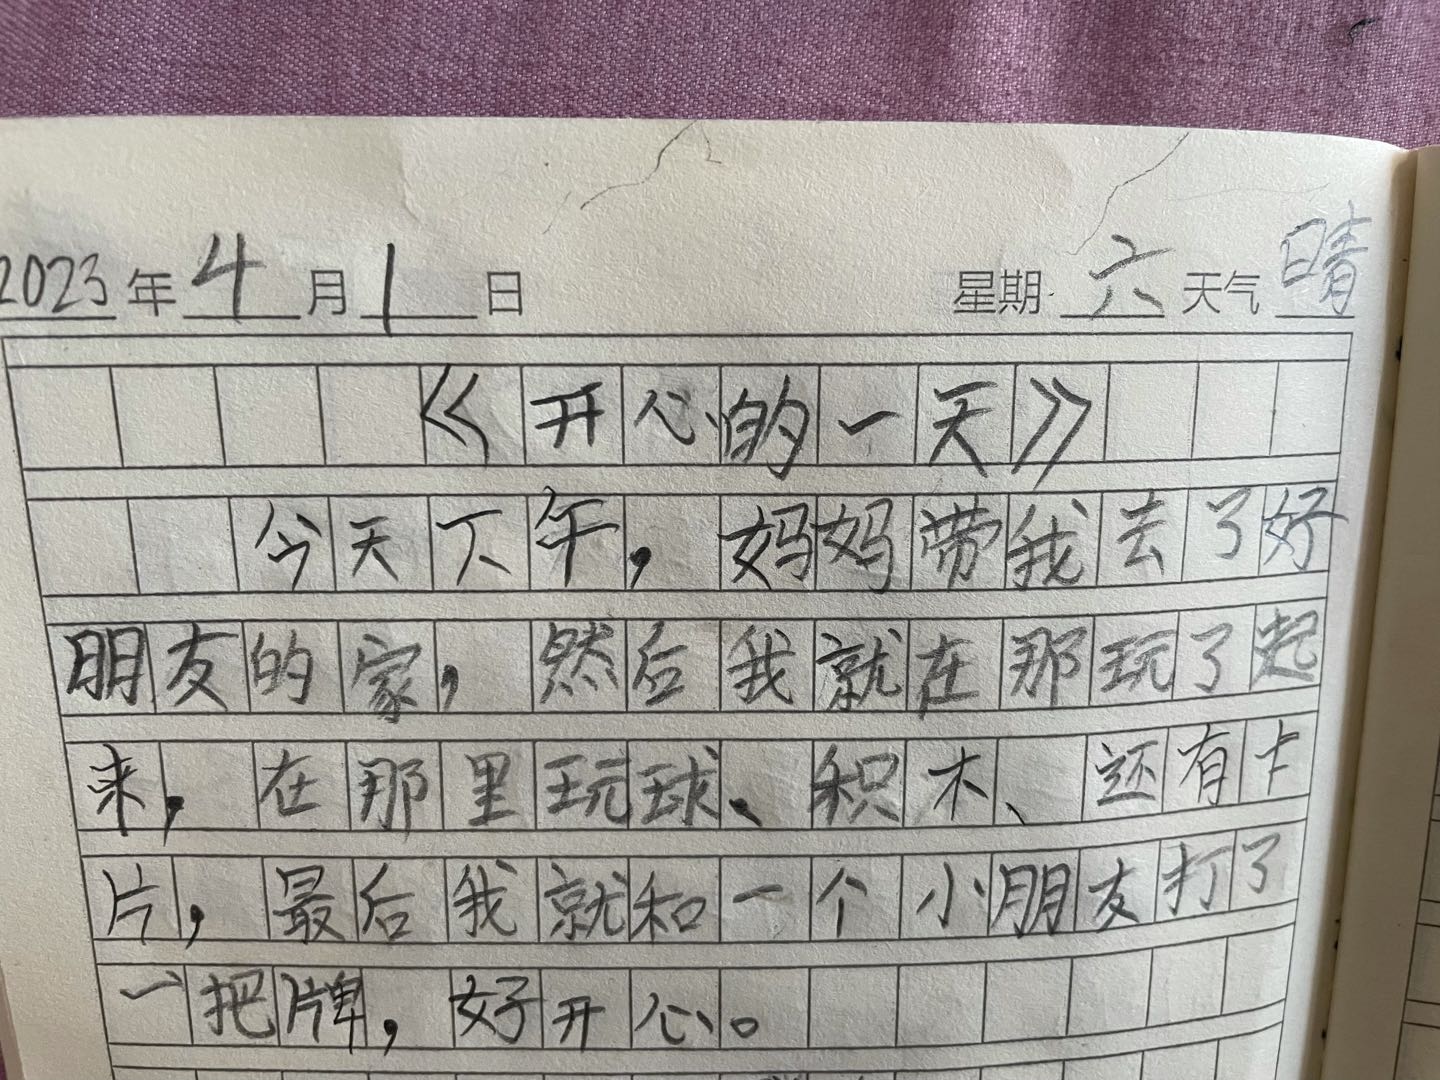 2023年4月1日 星期六 天气晴
《开心的一天》
今天下午，妈妈带我去了好
朋友的家，然后我就在那玩了起
来，在那里玩球、积木、还有卡
片，最后我就和一个小朋友打了
一把牌，好开心。